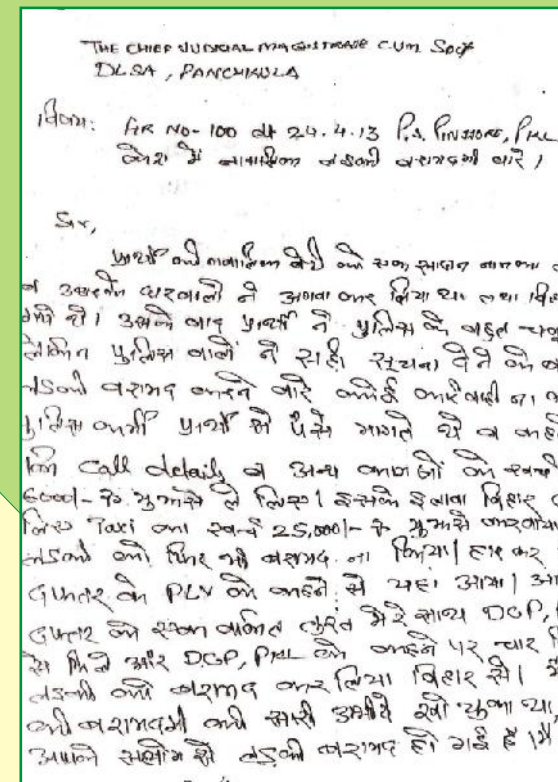 THE CHIEF JUDICIAL MAGISTRATE CUM Secy
DLSA, PANCHKULA
विषय: FIR NO-100 dt 24.4.13 P.S. PINJORE, PKL
केश में नाबालिक लडकी बरामदगी बारे।
Sir,
प्रार्थी की नबालिक बेटी को एक साजन नामका
व उसके घरवालो ने अगवा कर लिया था तथा
गये थे। उसके बाद प्रार्थी ने पुलिस के बहुत
लेकिन पुलिस वालों ने सही सूचना देने के
लडकी बरामद करने बारे कोई कार्रवाही ना
पुलिस कर्मी प्रार्थी से पैसे मागते थे व
कि call details व अन्य कागजों के
6000/- रु मुझसे ले लिए। इसके इलावा बिहार
लिए Taxi का खर्च 25,000/- रु मुझसे करवाया
लडकी को फिर भी बरामद ना किया। हार कर
दफ्तर के PLV के कहने से यहा आया।
दफ्तर के एक वकील तुरंत मेरे साथ DCP,
से मिले और DCP, PKL के कहने पर चार
लडकी को बरामद कर लिया बिहार से।
की बरामदगी की सारी उम्मीदे खो चुका था,
आपके सहयोग से लडकी बरामद हो गई है। मैं